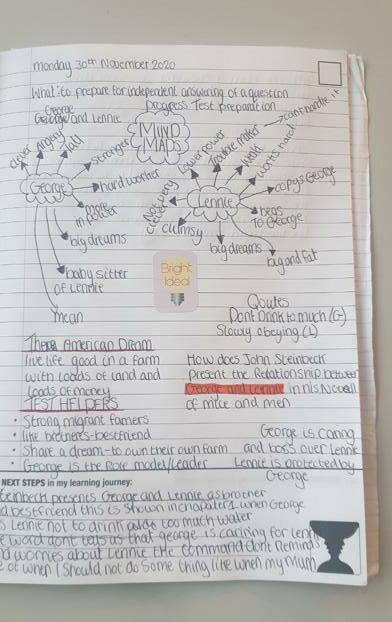 monday 30th November 2020
What to prepare for independent answering of a question
Progress Test preparation
George
George and Lennie
MIND
MAPS
George
clever
Angery
tall
stronger
hard worker
more
in power
big dreams
baby sitter
of Lennie
mean
Lennie
Not very
clever
Lower power
Trouble maker
weak
cant handle it
works hard
copys George
begs
To George
big and fat
big dreams
clumsy
Bright
Idea!
Qoutes
Dont Drink to much (G)
Slowly obeying (L)
There American Dream
live life good in a farm
with loads of land and
loads of money
How does John Steinbeck
present the Relationship between
George and Lennie in his Novell
of mice and men
TEST HELPERS
• Strong migrant famers
• like brothers-bestfriend
• Share a dream-to own their own farm
• George is the Role model/leader
George is caring
and boss over Lennie
Lennie is protected by
George
NEXT STEPS in my learning journey:
teinbeck presents George and Lennie as brother
d bestfriend this is shown in chapater 1 when George
s Lennie not to drink too much water
e word dont tells us that george is cariing for Lenn
d worries about Lennie the command dont Reminds
e of when I should not do Some thing like when my Mum